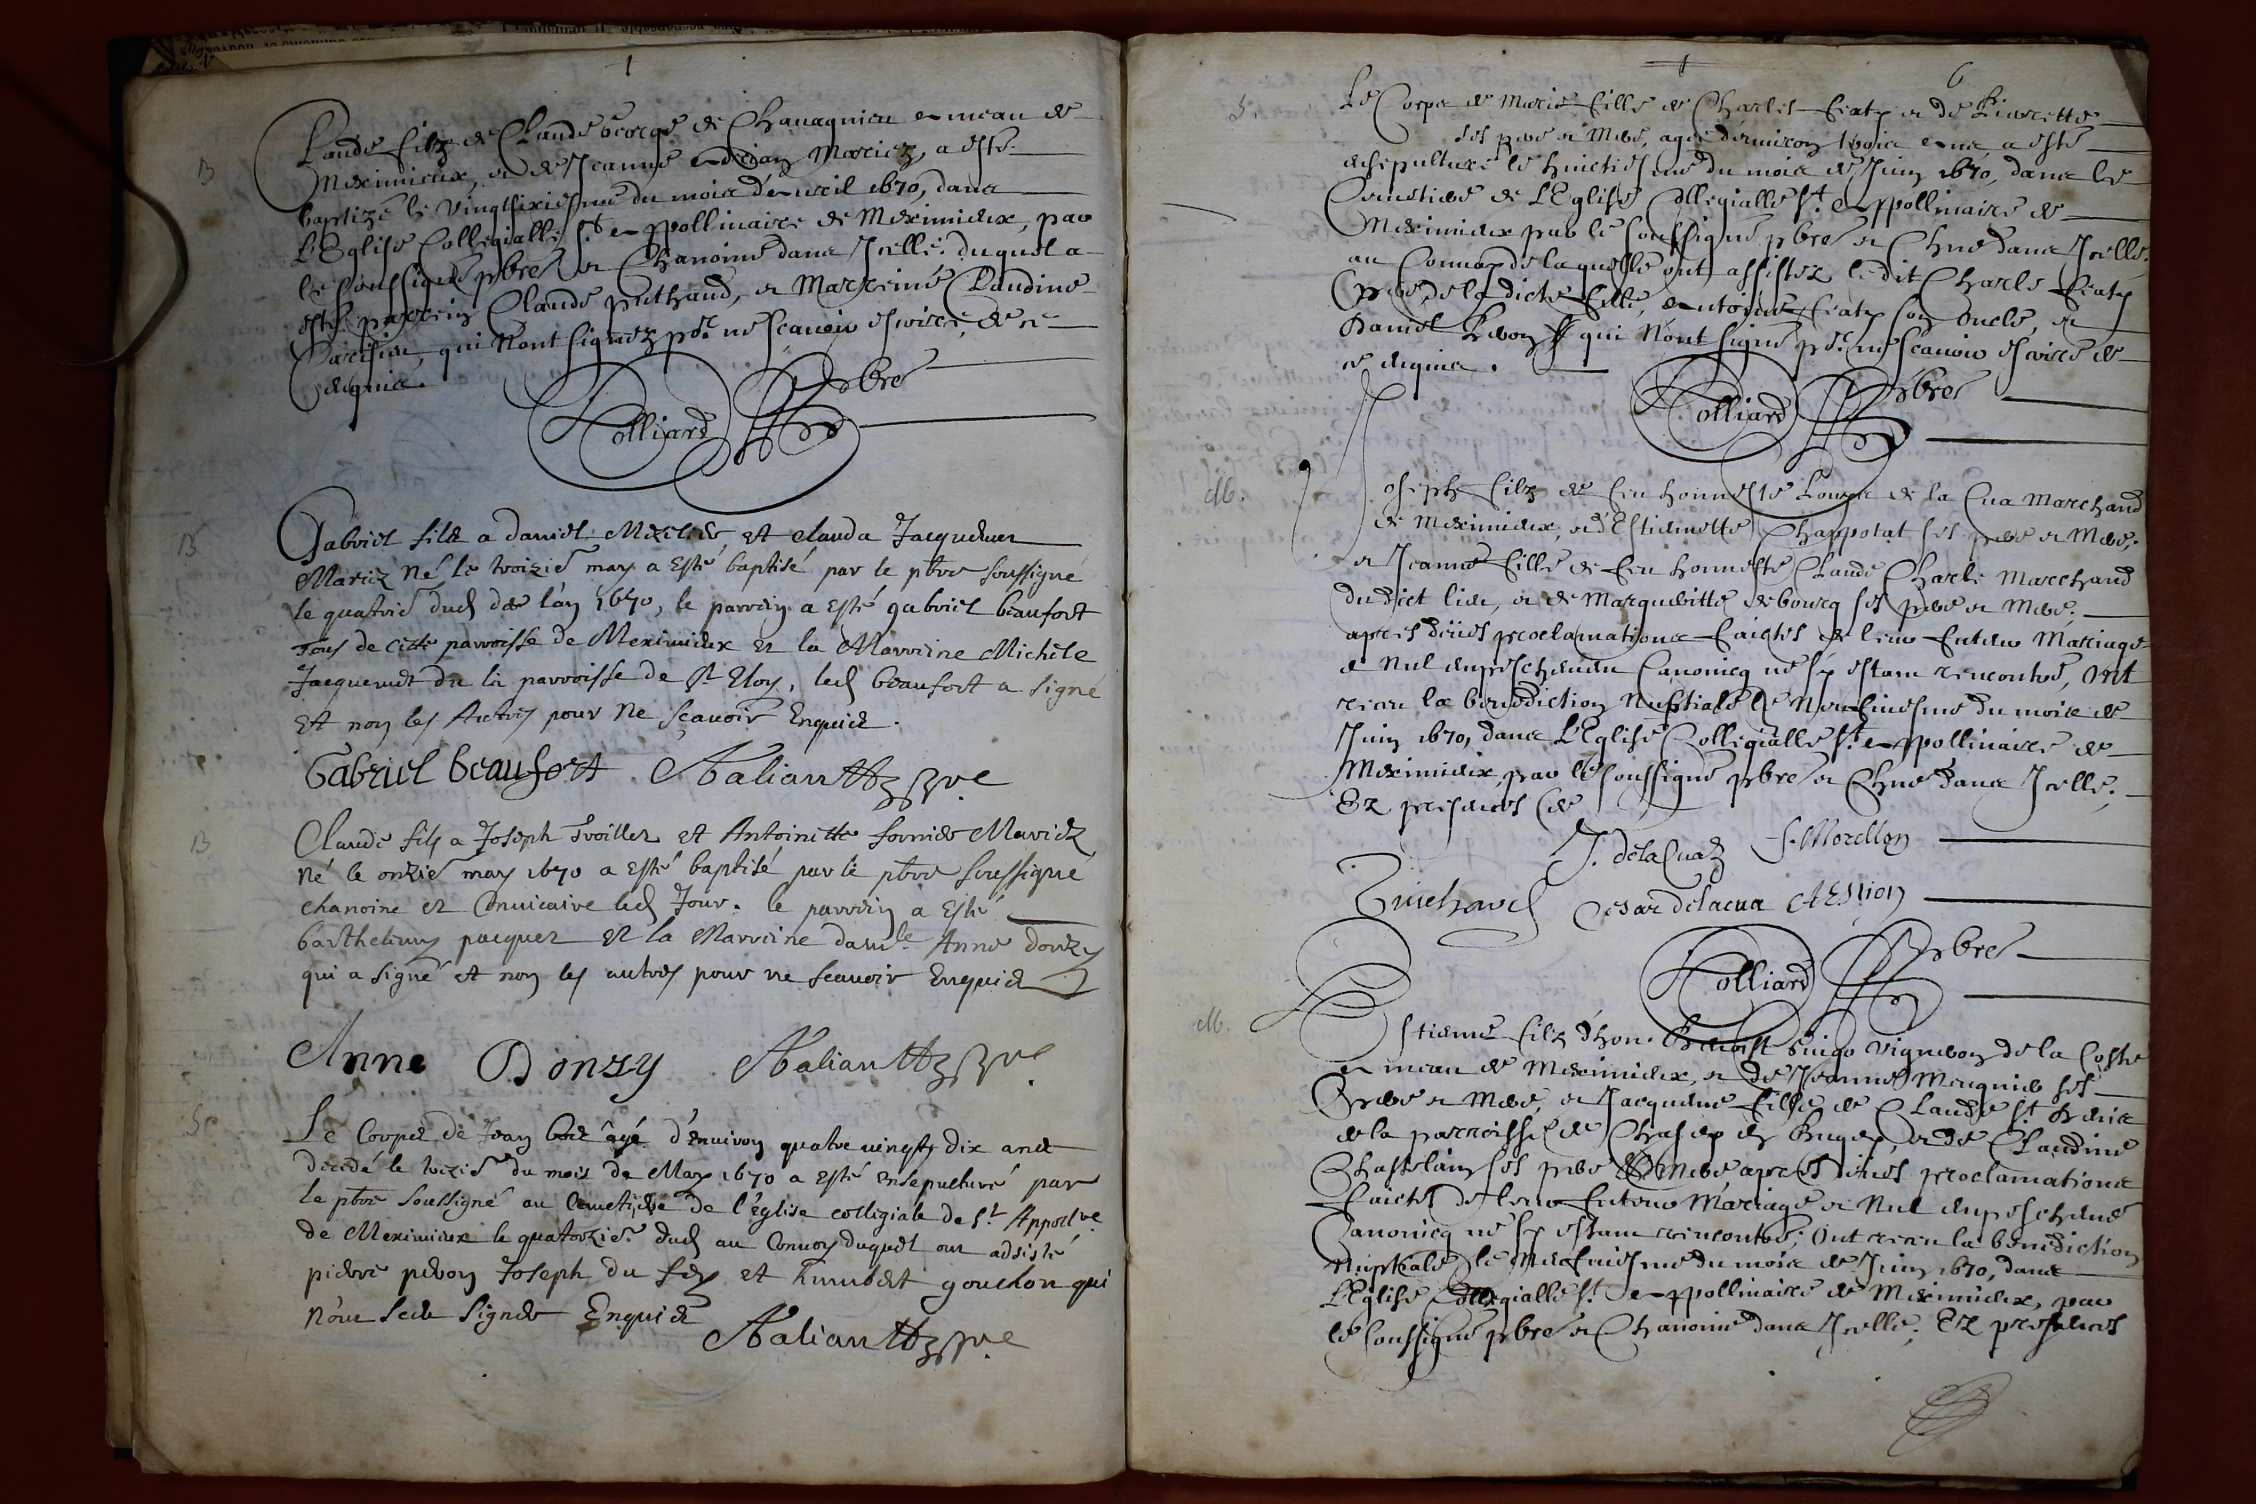 B
Claude filz de Claude George de Chavagnieu hameau de
Meximieux, et de Jeanne mariez, a esté
baptizé le vingtsixiesme du mois d'Avril 1670, dans
L'Eglise Collegialle St Appollinaire de Meximieux, par
le soussigné pbre et Chanoine dans Icelle. duquel a
esté parrein Claude puthaud, et Marreine Claudine
qui n'ont signez pr ne scavoir escrire, de ce
enquis.
Rolliard pbre
B
Gabriel fils a daniel et clauda Jacquemet
Mariez né le troizie may a Esté baptisé par le pbre soussigné
le quatrie dud de l'an 1670, le parrein a Esté gabriel beaufort
tous de cette parroisse de Meximieux et la Marreine Michele
Jacquemet de la parroisse de St Eloy, led beaufort a signé
Et non les Autres pour ne sçavoir Enquis.
Gabriel beaufort pbre
B
Claude fils a Joseph Troillet et Antoinette fornier Mariez
né le onzie may 1670 a Esté baptisé par le pbre soussigné
chanoine et Convicaire led Jour. le parrein a Esté
barthelemy pacquet et la Marreine damle Anne donzy
qui a signé et non les autres pour ne scavoir Enquis
Anne Donzy pbre
S.
Le Corps de Jean âgé d'environ quatre vingts dix ans
decedé le trezie du mois de May 1670 a Esté ensepulturé par
le pbre soussigné au Cemetiere de l'église collegiale de St Appore
de Meximieux le quatorzie dud au Convoy duquel ont adsisté
pierre peron Joseph du fey et humbert gouchon qui
n'ont sceu signer Enquis
pbre
6
S.
Le Corps de Marie fille de Charles et de Pierrette
ses pere et Mere, agée d'environ trois ans, a esté
ensepulturé le huictiesme du mois de Juin 1670, dans le
Cemetiere de L'Eglise Collegialle St Appollinaire de
Meximieux par le soussigné pbre et Chne dans Icelle.
au Convoy de laquelle ont assistez ledit Charle
pere de la dicte fille, Antoine son oncle, et
Daniel qui n'ont signé pr ne scavoir escrire de
ce enquis.
Rolliard pbre
M.
Joseph filz de feu honneste Louys de la Cua Marchand
de Meximieux, et d'Estiennette Chappotat ses pere et Mere,
et Jeanne fille de feu honneste Claude Charle Marchand
dudict lieu, et de Margueritte debourg ses pere et Mere,
apres deües proclamations faictes de leur futeur Mariage
et Nul empeschement Canonicq ne s'y estant rencontré, ont
receu la benediction Nuptiale le Neufviesme du mois de
Juin 1670, dans L'Eglise Collegialle St Appollinaire de
Meximieux, par le soussigné pbre et Chne dans Icelle,
Ez presences de
J. delaCua S. Morellon
Guichard Cesar delacua
Rolliard pbre
M.
Estienne filz d'hon. Benoist vigneron de la Coste
hameau de Meximieux, et de Jeanne Meugnier ses
Pere et Mere, et Jacqueme fille de Claude St Denis
de la parroisse de en Bugey, et de Claudine
Chastelain ses pere et Mere apres deües proclamations
faictes de leur futeur Mariage et Nul empeschement
Canonicq ne s'y estant rencontré, Ont receu la benediction
Nuptiale le Neufviesme du mois de Juin 1670, dans
L'Eglise Collegialle St Appollinaire de Meximieux, par
le soussigné pbre et Chanoine dans Icelle, Ez presences